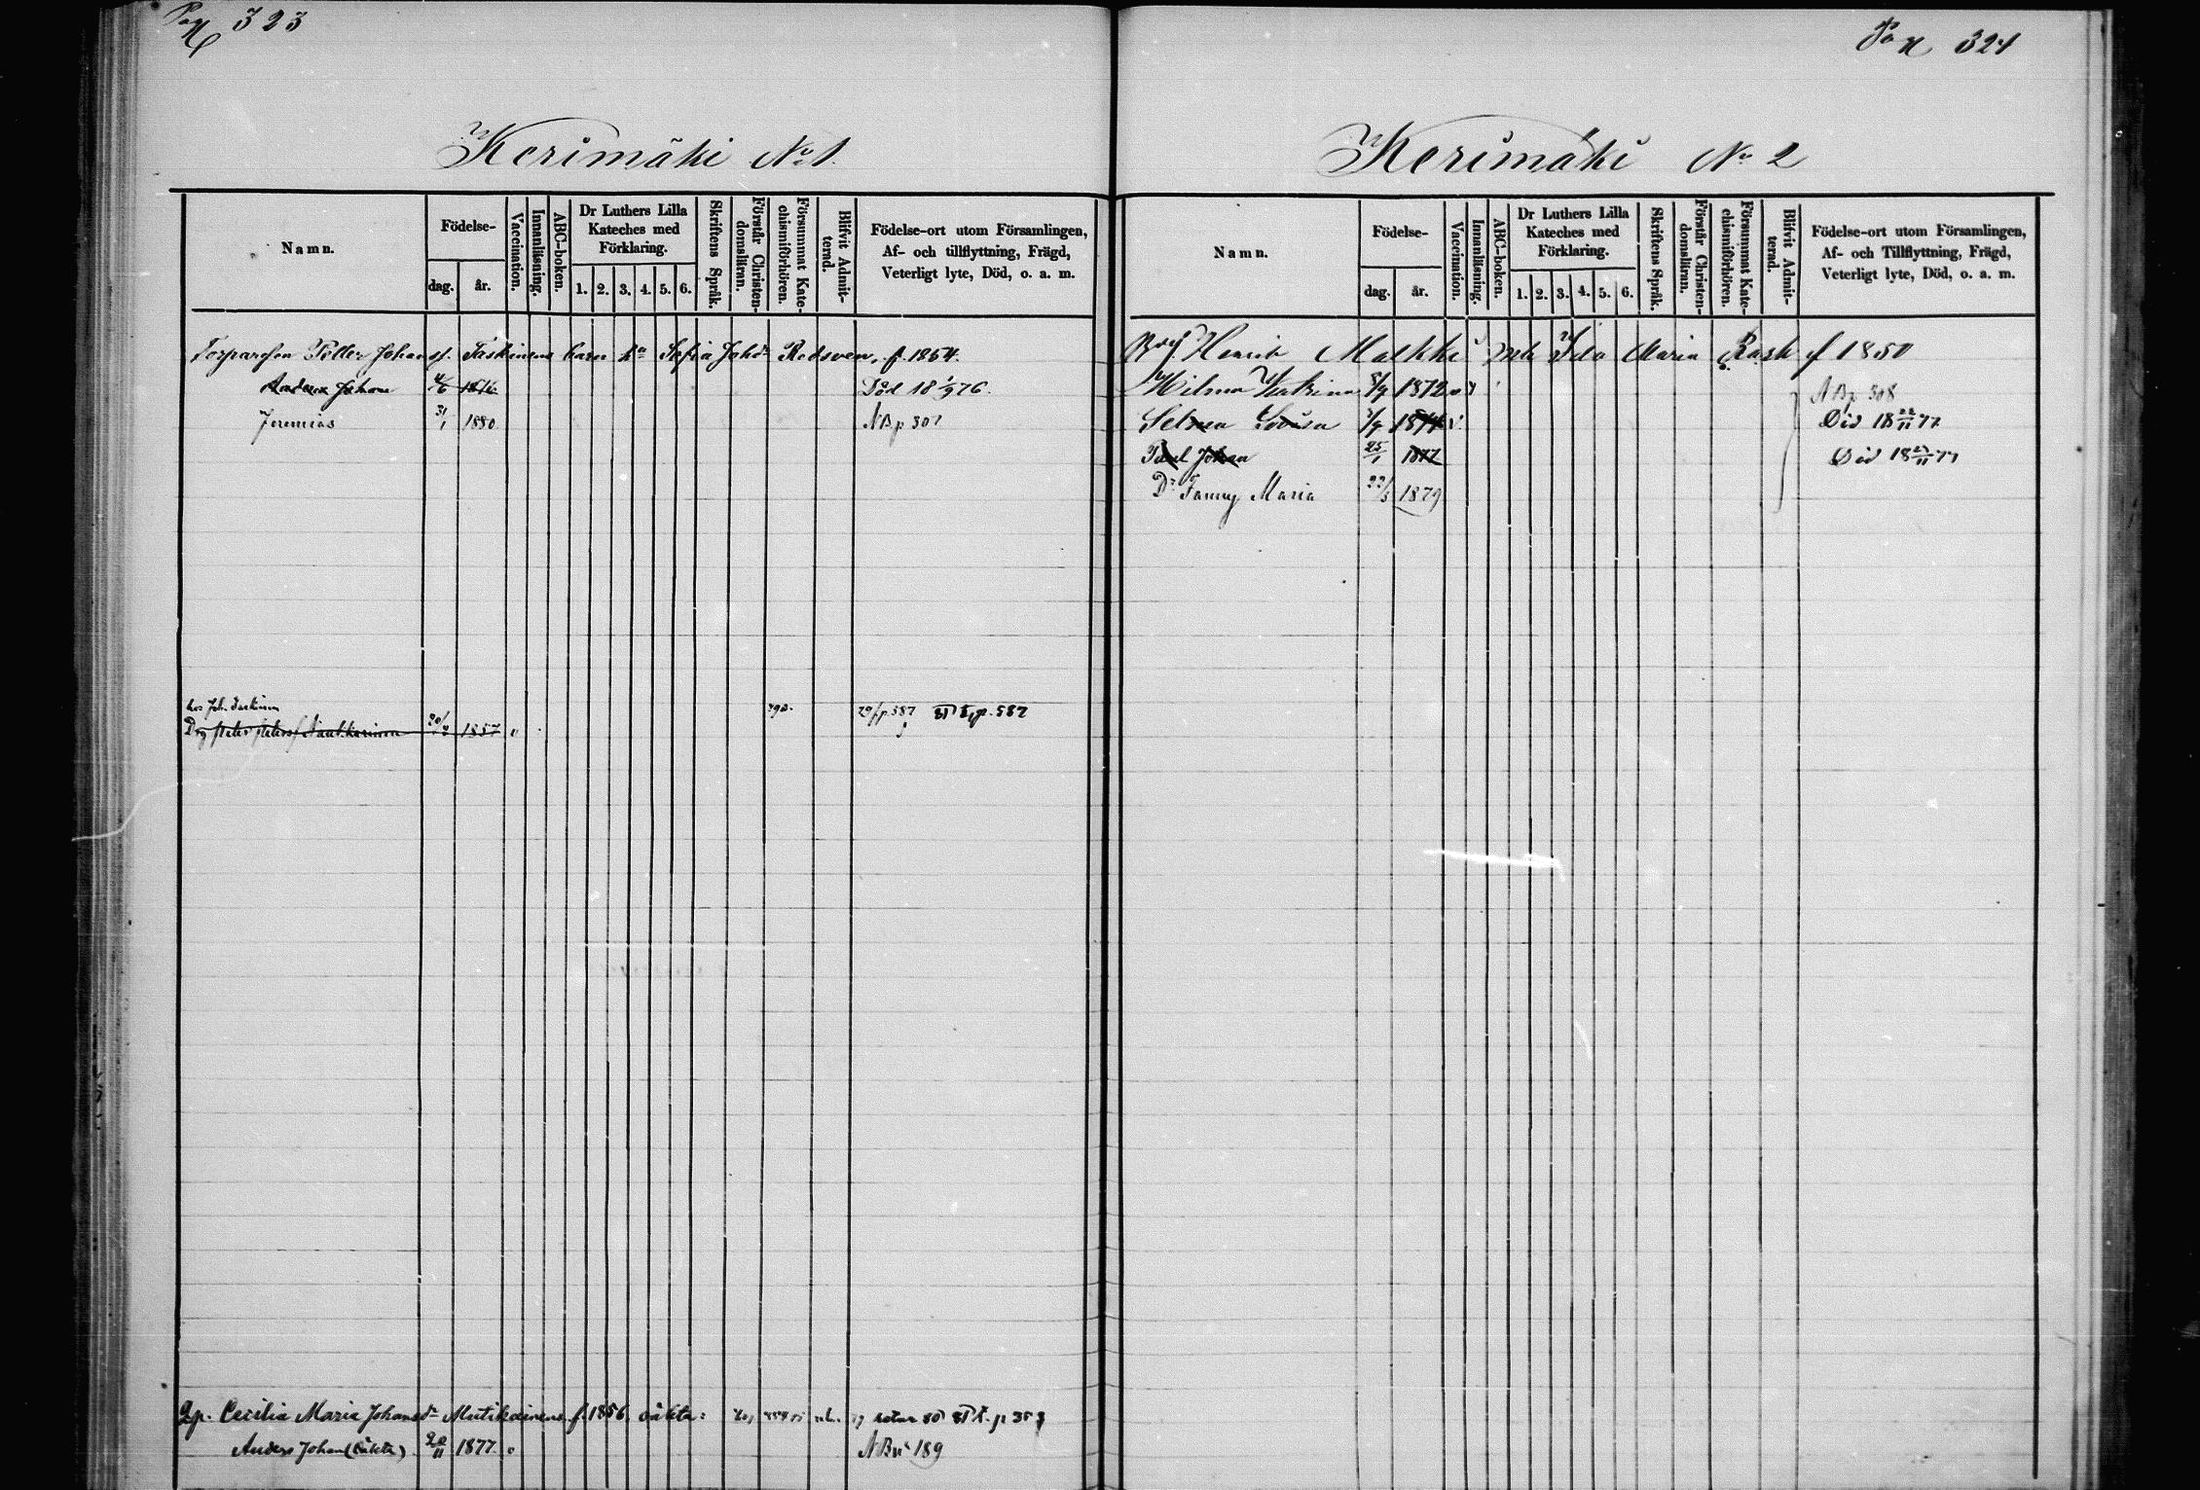 Pag 323
Kerimäki No 1.
Namn.
Födelse-
dag.
år.
Vaccination.
Innanläsning.
ABC-boken.
Dr Luthers Lilla
Kateches med
Förklaring.
1. 2. 3. 4. 5. 6.
Skriftens Språk.
Förstår Christen-
domsläran.
Försummat Kate-
chismiförhören.
Blifvit Admit-
terad.
Födelse-ort utom Församlingen,
Af- och tillflyttning, Frägd,
Veterligt lyte, Död, o. a. m.
Petter Johan Taskinens barn Sofia Johdr f. 1854.
Johan Död 18 1/9 76.
Jeremias 31/1 1880 NB p 307
hos Joh. Taskinen
1857 p. 587
Cecilia Maria Johansdr Mutikainens f. 1856 oäkta:
Anders Johan (oäkta) 20/11 1877 NB 189
Pag 324
Kerimäki No 2
Namn.
Födelse-
dag.
år.
Vaccination.
Innanläsning.
ABC-boken.
Dr Luthers Lilla
Kateches med
Förklaring.
1. 2. 3. 4. 5. 6.
Skriftens Språk.
Förstår Christen-
domsläran.
Försummat Kate-
chismiförhören.
Blifvit Admit-
terad.
Födelse-ort utom Församlingen,
Af- och Tillflyttning, Frägd,
Veterligt lyte, Död, o. a. m.
Henrik Malkki Ida Maria Rask f 1850
Hilma Katrina 8/9 1872 NB p 308
Selma Lovisa 1874 Död 18 22/11 77
Paul Johan 25/1 1877 Död 18 27/11 77
Dr Fanny Maria 22/3 1879